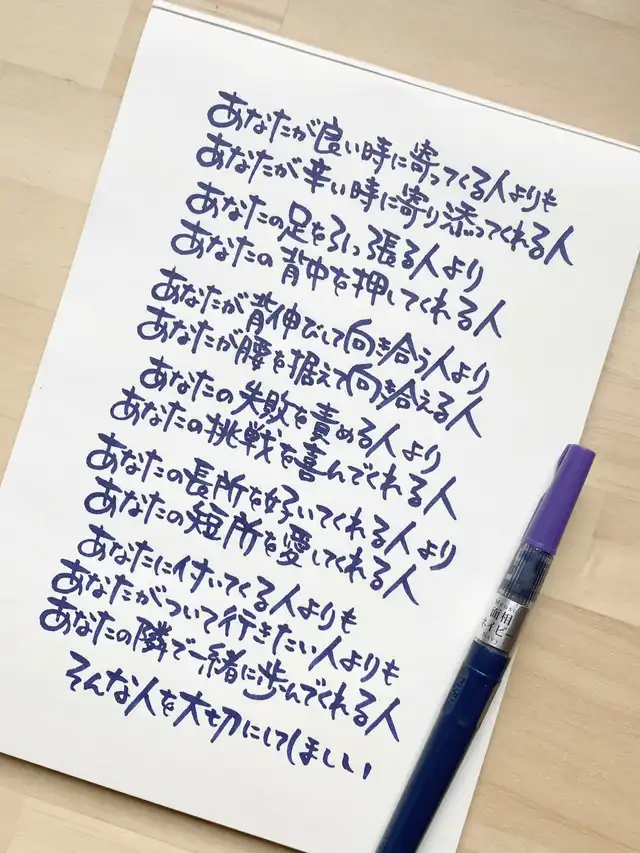 あなたが良い時に寄ってくる人よりも
あなたが辛い時に寄り添ってくれる人
あなたの足を引っ張る人より
あなたの背中を押してくれる人
あなたが背伸びして向き合う人より
あなたが腰を据えて向き合える人
あなたの失敗を責める人より
あなたの挑戦を喜んでくれる人
あなたの長所を好いてくれる人より
あなたの短所を愛してくれる人
あなたに付いてくる人よりも
あなたがついて行きたい人よりも
あなたの隣で一緒に歩んでくれる人
そんな人を大切にしてほしい
面相
ネイビー